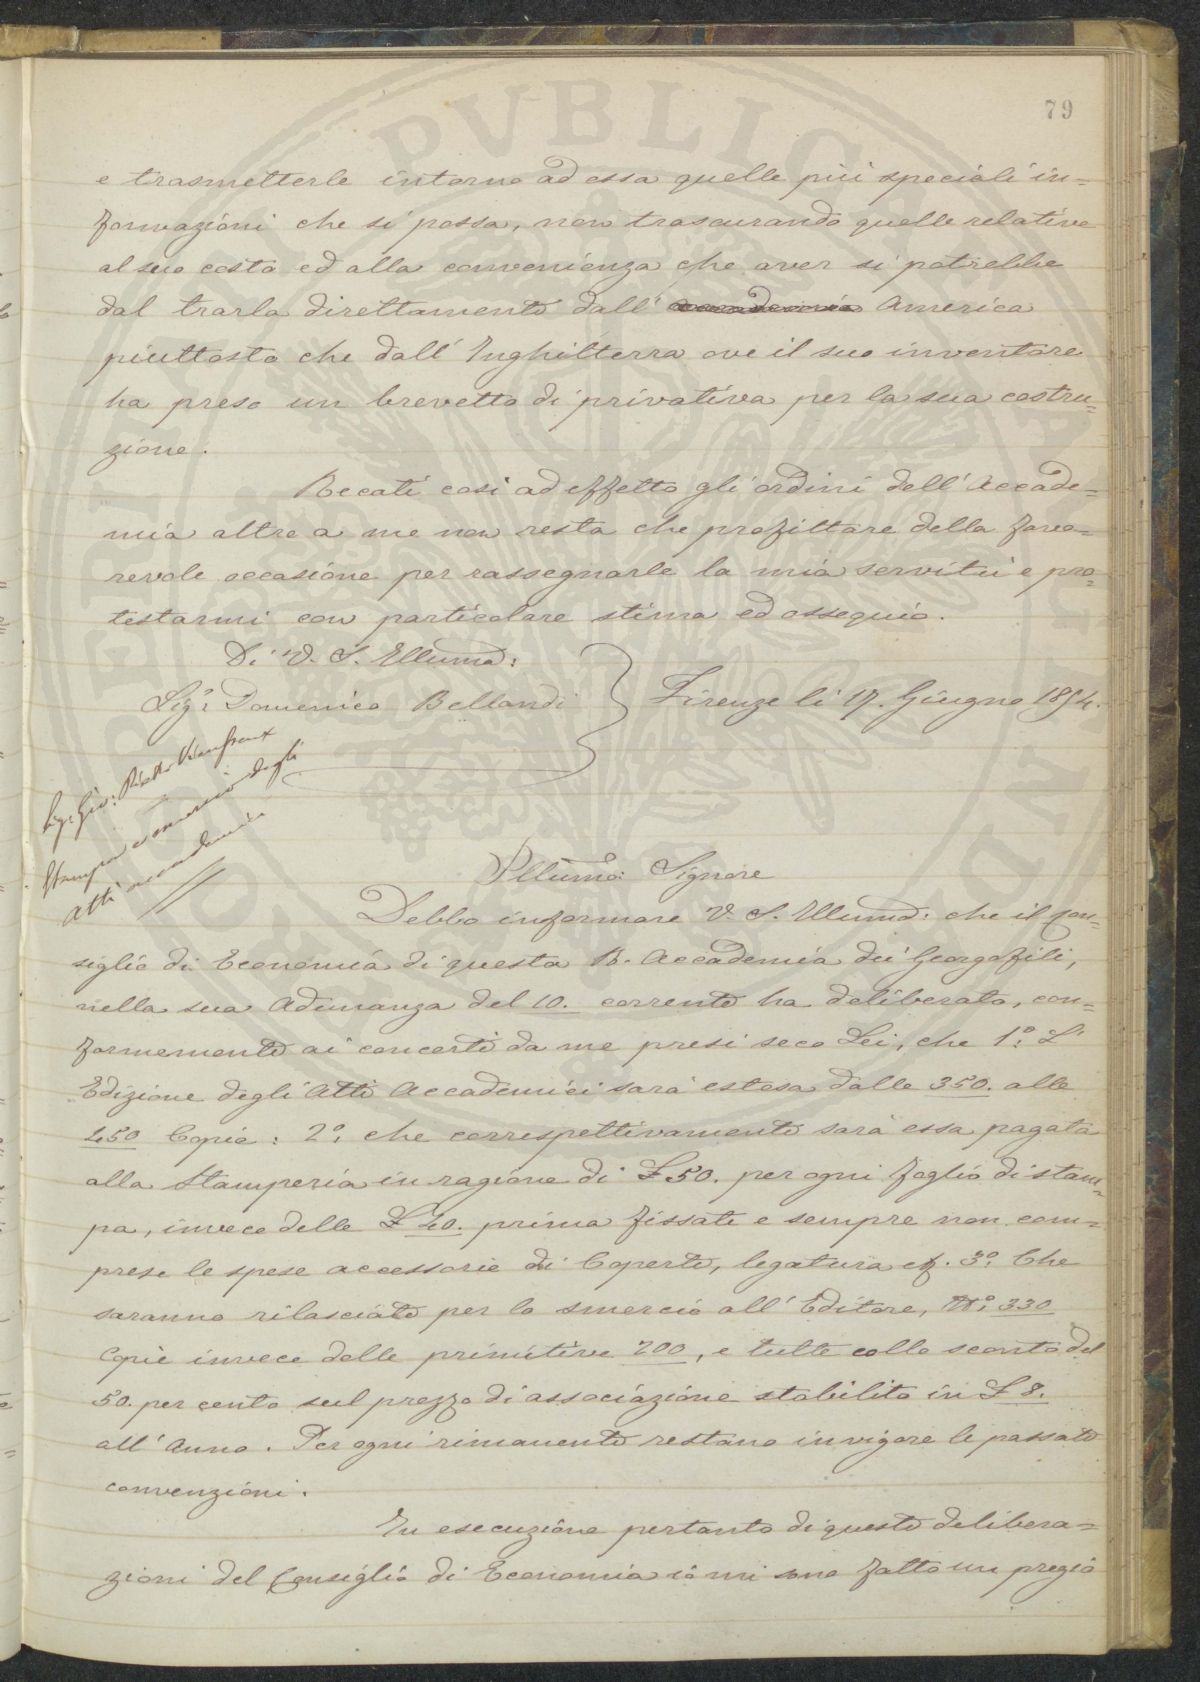 79
e trasmetterle intorno ad essa quelle più speciali in=
formazioni che si possa, non trascurando quelle relative
al suo costo ed alla convenienza che aver si potrebbe
dal trarla direttamente dall' America
piuttosto che dall' Inghilterra ove il suo inventore
ha preso un brevetto di privativa per la sua costru=
zione.
Recati così ad effetto gli ordini dell' Accade=
mia altro a me non resta che profittare della favo=
revole occasione per rassegnarle la mia servitù e pro=
testarmi con particolare stima ed ossequio.
Di V. S. Illuma:
Sigr: Domenico Bellandi } Firenze li 17. Giugno 1854.
Sigr Gio: Pietro
Stampa e smercio degli
Atti accademici
Illumo: Signore
Debbo informare V. S. Illuma: che il Con=
siglio di Economia di questa R. Accademia dei Georgofili,
nella sua Adunanza del 10. corrente ha deliberato, con=
formemente ai concerti da me presi seco Lei, che 1o: L'
Edizione degli Atti Accademici sarà estesa dalle 350. alle
450 Copie: 2o: che correspettivamente sarà essa pagata
alla Stamperia in ragione di £ 50. per ogni foglio di stam=
pa, invece delle £ 40. prima fissate e sempre non com=
prese le spese accessorie di Coperte, legatura ec. 3o: Che
saranno rilasciate per lo smercio all' Editore, No: 330
Copie invece delle primitive 200, e tutte collo sconto del
50. per cento sul prezzo di associazione stabilito in £ 8.
all' Anno. Per ogni rimanente restano in vigore le passate
convenzioni.
In esecuzione pertanto di queste delibera=
zioni del Consiglio di Economia io mi sono fatto un pregio